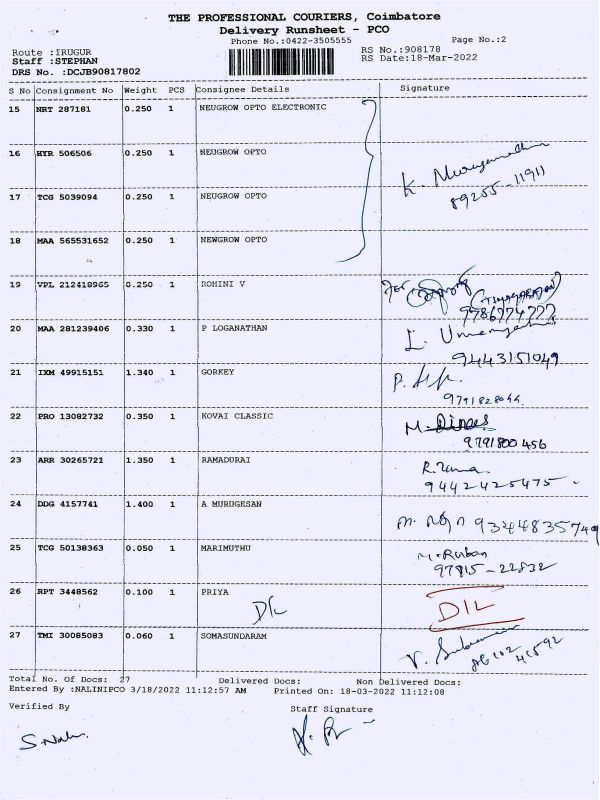 THE PROFESSIONAL COURIERS, Coimbatore
Delivery Runsheet - PCO
Phone No.:0422-3505555
Page No.:2
Route :IRUGUR
Staff :STEPHAN
DRS No. :DCJB90817802
RS No.:908178
RS Date:18-Mar-2022
S No Consignment No Weight PCS Consignee Details Signature
15 NRT 287181 0.250 1 NEUGROW OPTO ELECTRONIC
16 HYR 506506 0.250 1 NEUGROW OPTO
K. Muruganandhan
89255-11911
17 TCG 5039094 0.250 1 NEUGROW OPTO
18 MAA 565531652 0.250 1 NEWGROW OPTO
19 VPL 212418965 0.250 1 ROHINI V
9786774777
20 MAA 281239406 0.330 1 P LOGANATHAN
9443151049
21 IXM 49915151 1.340 1 GORKEY
9791828044
22 PRO 13082732 0.350 1 KOVAI CLASSIC
M. Dines
9791800456
23 ARR 30265721 1.350 1 RAMADURAI
R. Uma
9442425475
24 DDG 4157741 1.400 1 A MURUGESAN
9344835749
25 TCG 50138363 0.050 1 MARIMUTHU
M. Ruban
97815-22832
26 RPT 3448562 0.100 1 PRIYA
D/L D/L
27 TMI 30085083 0.060 1 SOMASUNDARAM
Total No. Of Docs: 27 Delivered Docs: Non Delivered Docs:
Entered By :NALINIPCO 3/18/2022 11:12:57 AM Printed On: 18-03-2022 11:12:08
Verified By Staff Signature